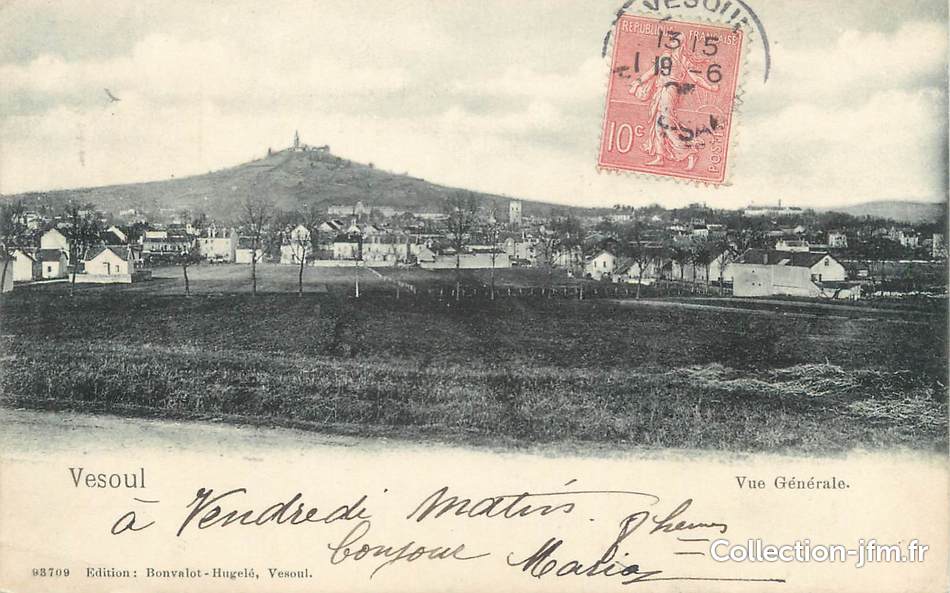 VESOUL
REPUBLIQUE FRANÇAISE
13 15
19 -6
10c
POSTES
Vesoul
Vue Générale.
à Vendredi matin. 8 heures
bonjour Maria
93709 Edition: Bonvalot-Hugelé, Vesoul.
Collection-jfm.fr